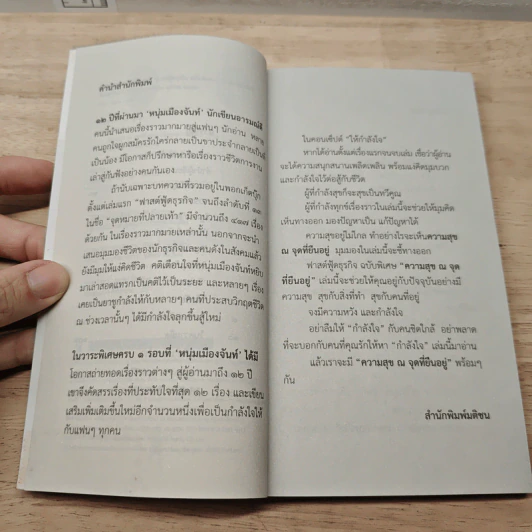 คำนำสำนักพิมพ์
๑๒ ปีที่ผ่านมา 'หนุ่มเมืองจันท์' นักเขียนอารมณ์ดี
คนนี้นำเสนอเรื่องราวมากมายสู่แฟนๆ นักอ่าน หลาย
คนถูกใจผูกสมัครรักใคร่กลายเป็นขาประจำกลายเป็นพี่
เป็นน้อง มีโอกาสก็ปรึกษาหารือเรื่องราวชีวิตการงาน
เล่าสู่กันฟังอย่างคนกันเอง
ลำนับเฉพาะบทความที่รวมอยู่ในพอกเก็ตบุ๊ก
ตั้งแต่เล่มแรก "ฟาสต์ฟู้ดธุรกิจ" จนถึงลำดับที่ ๑๑
ในชื่อ "จุดหมายที่ปลายเท้า" มีจำนวนถึง ๔๑๗ เรื่อง
ด้วยกัน ในเรื่องราวมากมายเหล่านั้น นอกจากจะนำ
เสนอมุมมองชีวิตของนักธุรกิจและคนดังในสังคมแล้ว
ยังมีมุมให้แง่คิดชีวิต คติเตือนใจที่หนุ่มเมืองจันท์หยิบ
มาเล่าสอดแทรกเป็นคติไว้เป็นระยะ และหลายๆ เรื่อง
เคยเป็นยาชูกำลังให้กับหลายๆ คนที่ประสบวิกฤตชีวิต
ณ ช่วงเวลานั้นๆ ได้มีกำลังใจลุกขึ้นสู้ใหม่
ในวาระพิเศษครบ ๑ รอบที่ 'หนุ่มเมืองจันท์' ได้มี
โอกาสถ่ายทอดเรื่องราวต่างๆ สู่ผู้อ่านมาถึง ๑๒ ปี
เขาจึงคัดสรรเรื่องที่ประทับใจที่สุด ๑๒ เรื่อง และเขียน
เสริมเพิ่มเติมขึ้นใหม่อีกจำนวนหนึ่งเพื่อเป็นกำลังใจให้
กับแฟนๆ ทุกคน
ในคอนเซ็ปต์ "ให้กำลังใจ"
หากได้อ่านตั้งแต่เรื่องแรกจนจบเล่ม เชื่อว่าผู้อ่าน
จะได้ความสนุกสนานเพลิดเพลิน พร้อมแง่คิดมุมบวก
และกำลังใจไว้ต่อสู้กับชีวิต
ผู้ที่กำลังสุขก็จะสุขเป็นทวีคูณ
ผู้ที่กำลังทุกข์เรื่องราวในเล่มนี้จะช่วยให้มุมคิด
เห็นทางออก มองปัญหาเป็น แก้ปัญหาได้
ความสุขอยู่ไม่ไกล ทำอย่างไรจะเห็นความสุข
ณ จุดที่ยืนอยู่ มุมมองในเล่มนี้จะชี้ทางออก
ฟาสต์ฟู้ดธุรกิจ ฉบับพิเศษ "ความสุข ณ จุด
ที่ยืนอยู่" เล่มนี้จะช่วยให้คุณอยู่กับปัจจุบันอย่างมี
ความสุข สุขกับสิ่งที่ทำ สุขกับคนที่อยู่
จงมีความหวัง และกำลังใจ
อย่าลืมให้ "กำลังใจ" กับคนชิดใกล้ อย่าพลาด
ที่จะบอกกับคนที่คุณรักให้หา "กำลังใจ" เล่มนี้มาอ่าน
แล้วเราจะมี "ความสุข ณ จุดที่ยืนอยู่" พร้อมๆ
กัน
สำนักพิมพ์มติชน